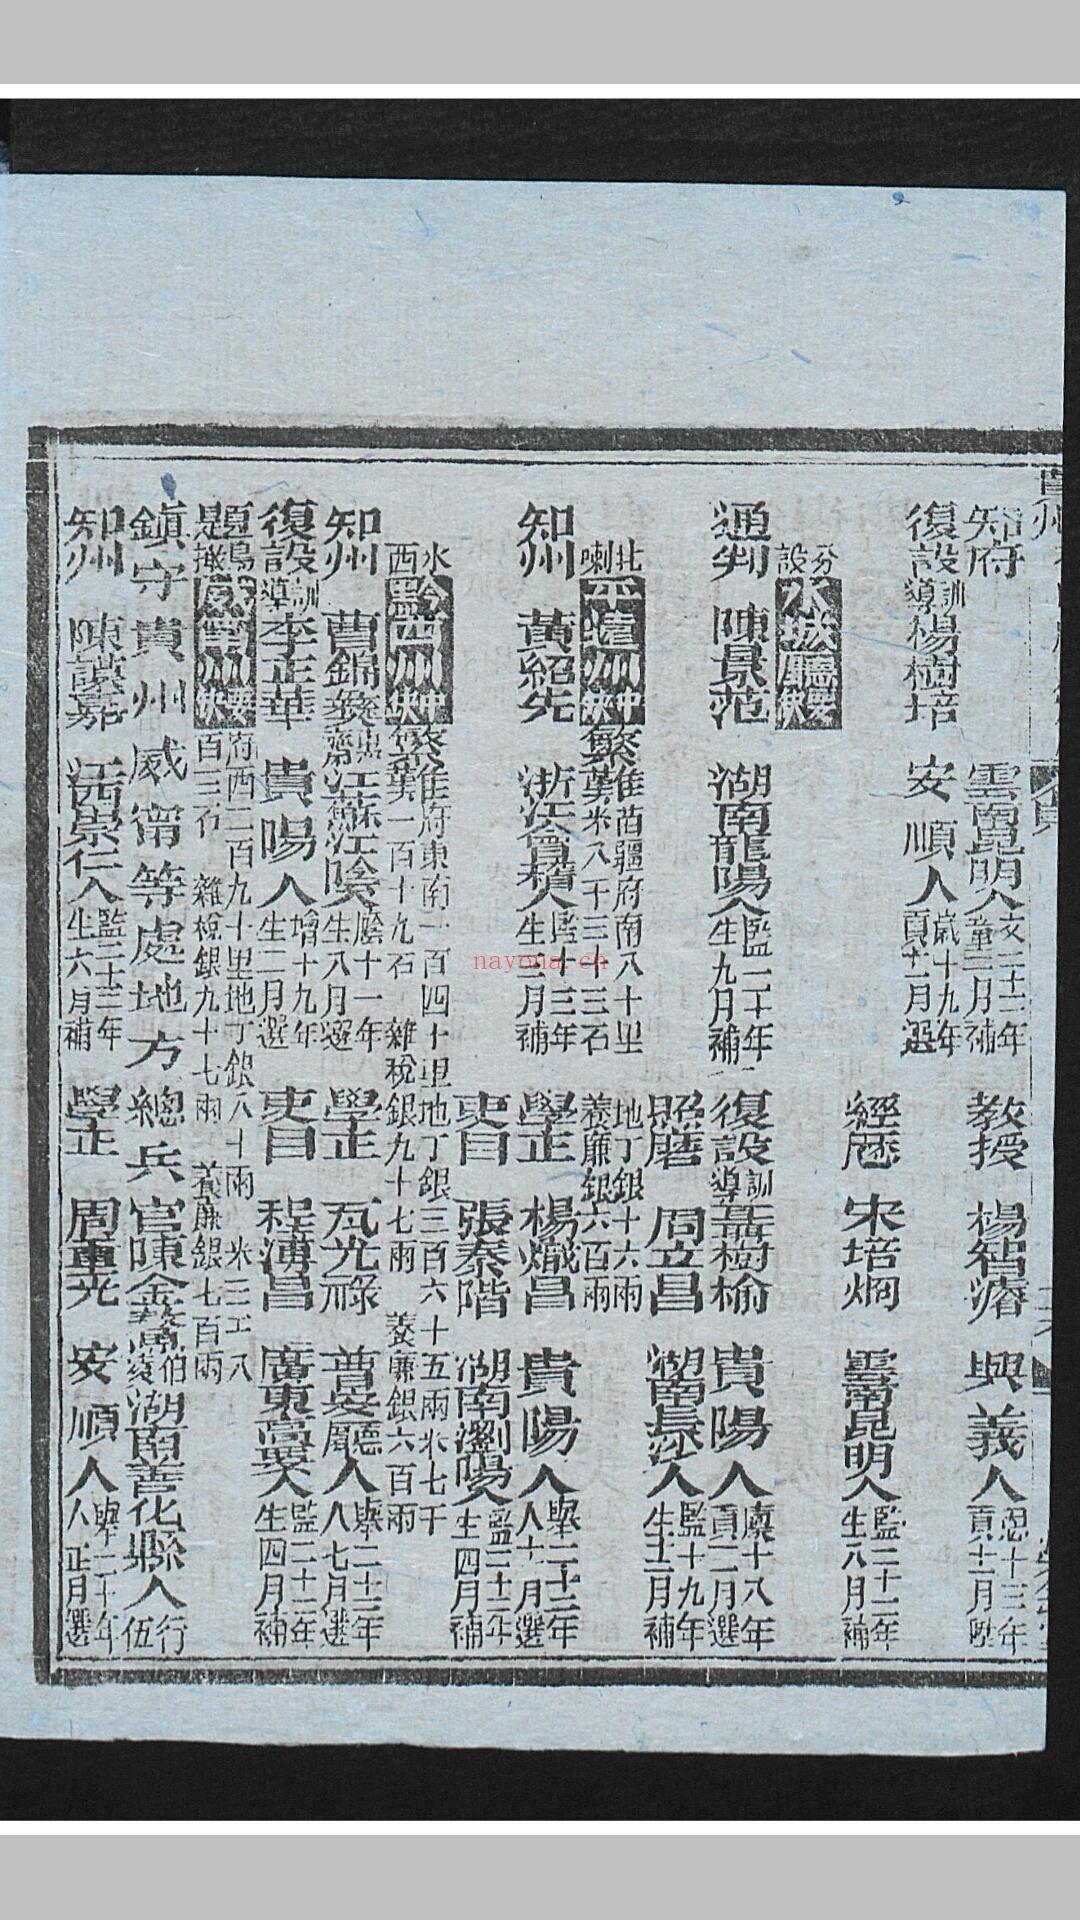 知府 雲南昆明人 文童 二十二年三月補 教授 楊智濬 興義人 恩貢 十三年十二月陞
復設訓導 楊樹培 安順人 歲貢 十九年十一月選
經歷 宋培炯 雲南昆明人 監生 二十一年八月補
分設 水城廳 要缺
通判 陳景范 湖南龍陽人 監生 二十年九月補 復設訓導 樹榆 貴陽人 廩貢 十八年二月選
照磨 周立昌 湖南長沙人 監生 十九年十二月補
比喇 平遠州 中缺 繁 隹苗疆府南八十里地丁銀十六兩 米八千三十三石 養廉銀六百兩
知州 黃紹先 浙江會稽人 監生 十三年三月補 學正 楊熾昌 貴陽人 舉人 二十二年十一月選
吏目 張泰階 湖南瀏陽人 監生 二十二年四月補
水西 黔西州 中缺 繁 隹府東南一百四十里地丁銀三百六十五兩米七千一百十九石 雜稅銀九十七兩 養廉銀六百兩
知州 曹錦 江蘇江陰人 廕生 十一年八月選 學正 光祿 普安廳人 舉人 二十三年七月選
復設訓導 李正華 貴陽人 增生 十九年二月選 吏目 程溥昌 廣東高要人 監生 二十二年四月補
題調烏撒 威甯州 要缺 府西二百九十里地丁銀八十兩 百三石 雜稅銀九十七兩 養廉銀七百兩
鎮守貴州威甯等處地方總兵官陳金鰲 湖南善化縣人 行伍
知州 陳謨嘉 江西崇仁人 監生 二十三年六月補 學正 周重光 安順人 舉人 二十年正月選